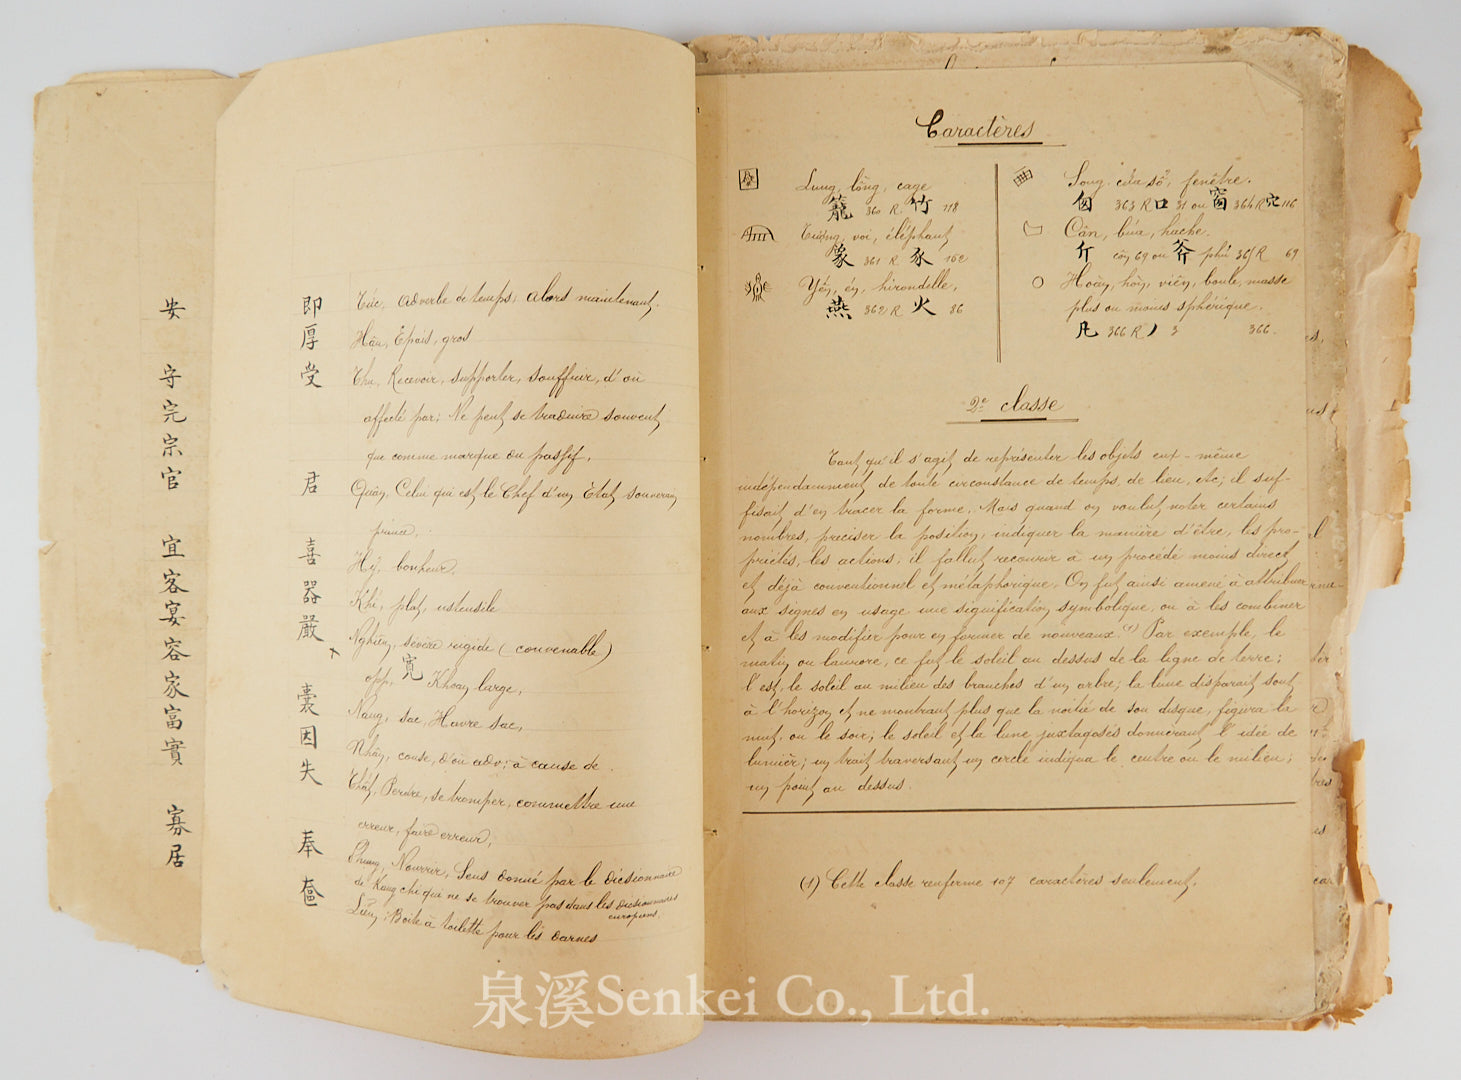 安
守
完
宗
官
宜
客
宴
容
家
富
實
寡
居
即 Tức, adverbe de temps, alors maintenant.
厚 Hậu, Epais, gros
受 Thu, Recevoir, supporter, souffrir, d'où
affecté par; Ne peut se traduire souvent
que comme marque du passif.
君 Quân, Celui qui est le Chef d'un Etat, souverain
prince.
喜 Hỷ, bonheur.
器 Khí, plat, ustensile
嚴 Nghiêm, sévère rigide (convenable)
opp. 寛 Khoan large,
囊 Nang, sac, Havre sac,
因 Nhân, cause, d'où adv; à cause de
失 Thất, Perdre, se tromper, commettre une
erreur, faire erreur,
奉 Phung, Nourrir, Sens donné par le dictionnaire
de Kang chi qui ne se trouve pas dans les dictionnaires
européens.
奩 Liêm, Boîte à toilette pour les dames
Caractères
Lung, lồng, cage
籠 360 R. 竹 118
Tượng, voi, éléphant
象 361 R. 豕 152
Yến, én, hirondelle,
燕 362 R 火 86
Song. cửa sổ, fenêtre.
囱 363 R 口 31 ou 窗 364 R 穴 116
Cân, búa, hache.
斤 cân 69 ou 斧 phủ 365 R 69
Hoàn, hòn, viên, boule, masse
plus ou moins sphérique.
凡 366 R 丿 3 366.
2e classe
Tant qu'il s'agit de représenter les objets eux-même
indépendamment de toute circonstance de temps, de lieu, etc; il suf-
fisait d'en tracer la forme. Mais quand on voulut noter certains
nombres, préciser la position, indiquer la manière d'être, les pro-
priétés, les actions, il fallut recourir à un procédé moins direct
et déjà conventionnel et métaphorique. On fut ainsi amené à attribuer
aux signes en usage une signification symbolique, ou à les combiner
et à les modifier pour en former de nouveaux.(1) Par exemple, le
matin ou l'aurore, ce fut le soleil au dessus de la ligne de terre;
l'est, le soleil au milieu des branches d'un arbre; la lune disparait sout
à l'horizon et ne montrant plus que la moitié de son disque, figura la
nuit, ou le soir; le soleil et la lune juxtaposés donnèrent l'idée de
lumière; un trait traversant un cercle indiqua le centre ou le milieu;
un point au dessus.
(1) Cette classe renferme 107 caractères seulement.
泉溪Senkei Co., Ltd.